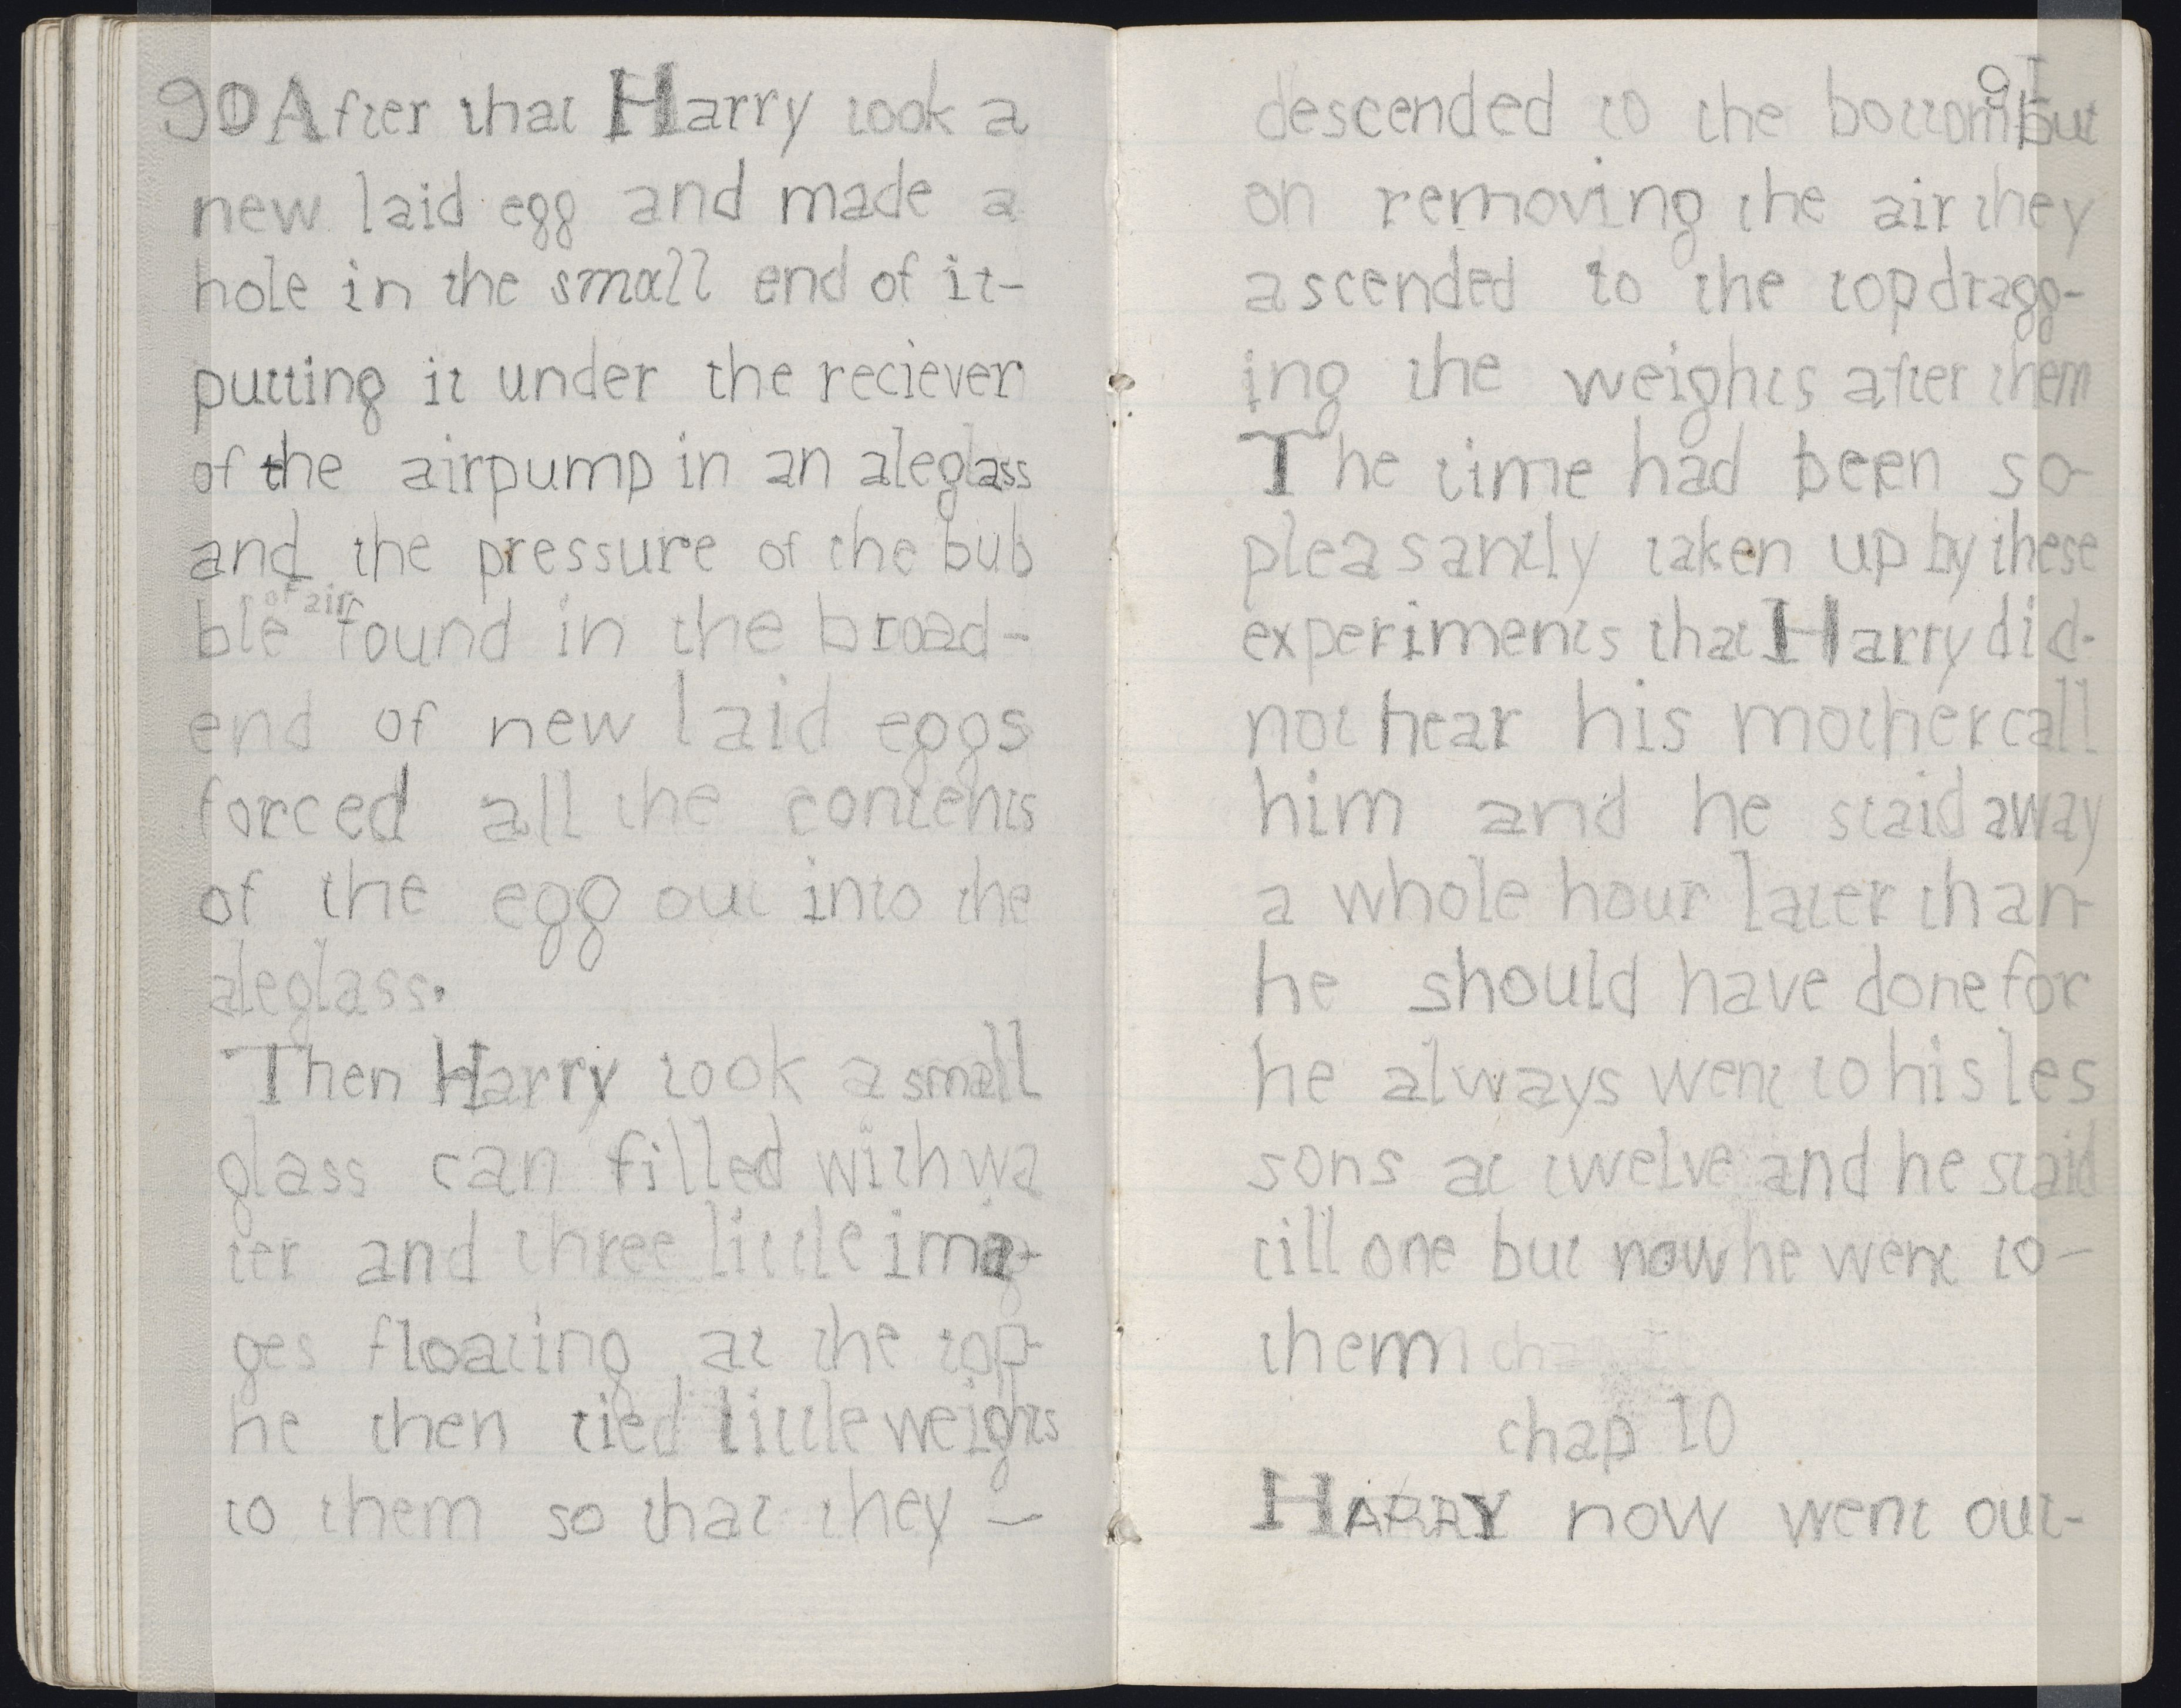 90 After that Harry took a
new laid egg and made a
hole in the small end of it-
putting it under the reciever
of the airpump in an aleglass
and the pressure of the bub
of air
ble found in the broad-
end of new laid eggs
forced all the contents
of the egg out into the
aleglass.
Then Harry took a small
glass can filled with wa
ter and three little ima-
ges floating at the top-
he then tied little weights
to them so that they —
91
descended to the bottom but
on removing the air they
ascended to the top dragg-
ing the weights after them
The time had been so-
pleasantly taken up by these
experiments that Harry did-
not hear his mother call
him and he staid away
a whole hour later than-
he should have done for
he always went to his les
sons at twelve and he staid
till one but now he went to-
them
chap 10
HARRY now went out-